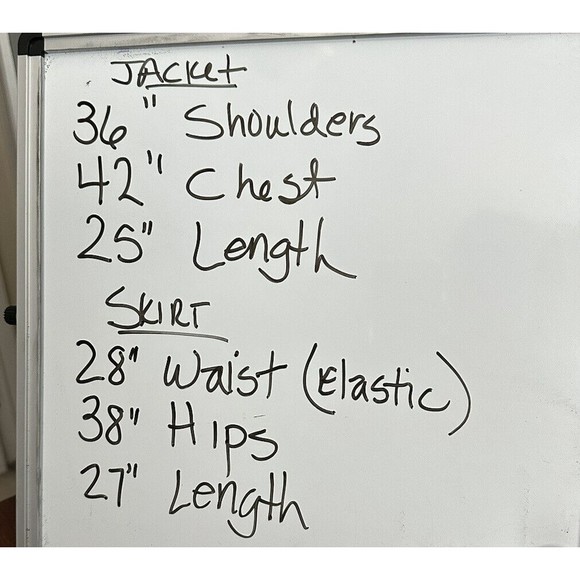 JACket
36" Shoulders
42" Chest
25" Length
SKIRT
28" Waist (Elastic)
38" Hips
27" Length